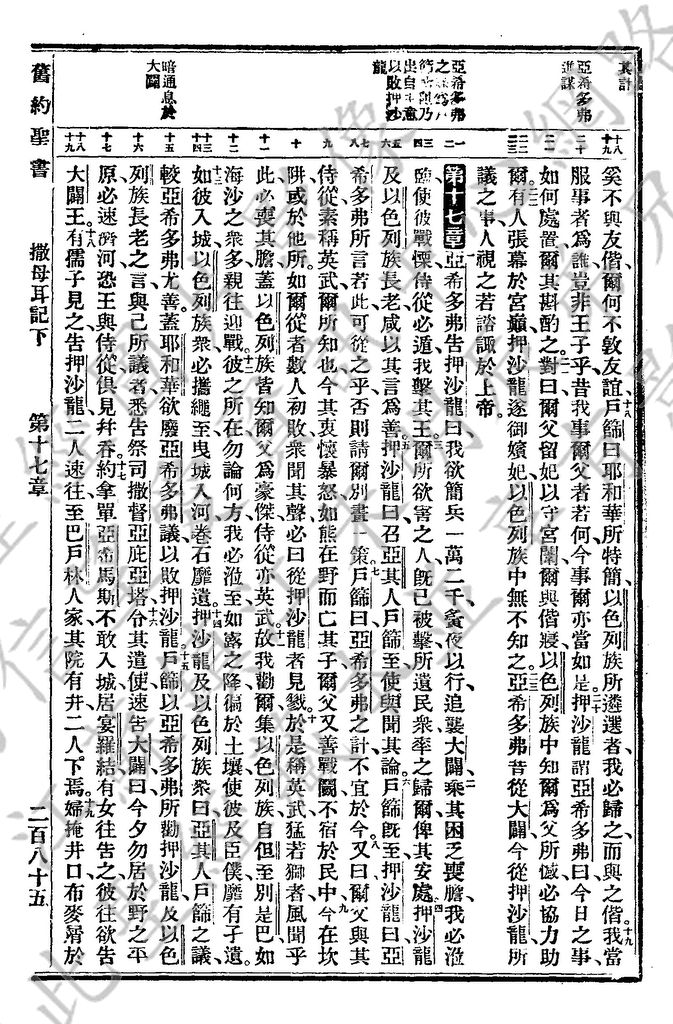 舊約聖書
撒母耳記下
第十七章
二百八十五
其計
亞希多弗
進謀
亞希多弗
以敗押沙
龍
暗通息於
大闢
奚不與友偕爾何不敦友誼戶篩曰耶和華所特簡以色列族所遴選者我必歸之而與之偕我當
服事者爲誰豈非王子乎昔我事爾父者若何今事爾亦當如是押沙龍謂亞希多弗曰今日之事
如何處置爾其斟酌之對曰爾父留妃以守宮闈爾與偕寢以色列族中知爾爲父所憾必協力助
爾有人張幕於宮巔押沙龍遂御嬪妃以色列族中無不知之亞希多弗昔從大闢今從押沙龍所
議之事人視之若諮諏於上帝
第十七章 亞希多弗告押沙龍曰我欲簡兵一萬二千夤夜以行追襲大闢乘其困乏喪膽我必涖
臨使彼戰慄侍從必遁我擊其王爾所欲害之人旣已被擊所遺民衆率之歸爾俾其安處押沙龍
及以色列族長老咸以其言爲善押沙龍曰召亞其人戶篩至使與聞其論戶篩旣至押沙龍曰亞
希多弗所言若此可從之乎否則請爾別畫一策戶篩曰亞希多弗之計不宜於今又曰爾父與其
侍從素稱英武爾所知也今其衷懷暴怒如熊在野而亡其子爾父又善戰鬭不宿於民中今在坎
阱或於他所如爾從者數人初敗衆聞其聲必曰從押沙龍者見戮於是稱英武猛若獅者風聞乎
此必喪其膽蓋以色列族皆知爾父爲豪傑侍從亦英武故我勸爾集以色列族自但至別是巴如
海沙之衆多親往迎戰彼之所在勿論何方我必涖至如露之降徧於土壤使彼及臣僕靡有孑遺
如彼入城以色列族衆必攜繩至曳城入河卷石靡遺押沙龍及以色列族衆曰亞其人戶篩之議
較亞希多弗尤善蓋耶和華欲廢亞希多弗議以敗押沙龍戶篩以亞希多弗所勸押沙龍及以色
列族長老之言與己所議者悉告祭司撒督亞庇亞塔令其遣使速告大闢曰今夕勿居於野之平
原必速濟河恐王與侍從俱見幷吞約拿單亞希馬斯不敢入城居宴羅結有女往告之彼往欲告
大闢王有儒子見之告押沙龍二人速往至巴戶林人家其院有井二人下焉婦掩井口布麥屑於